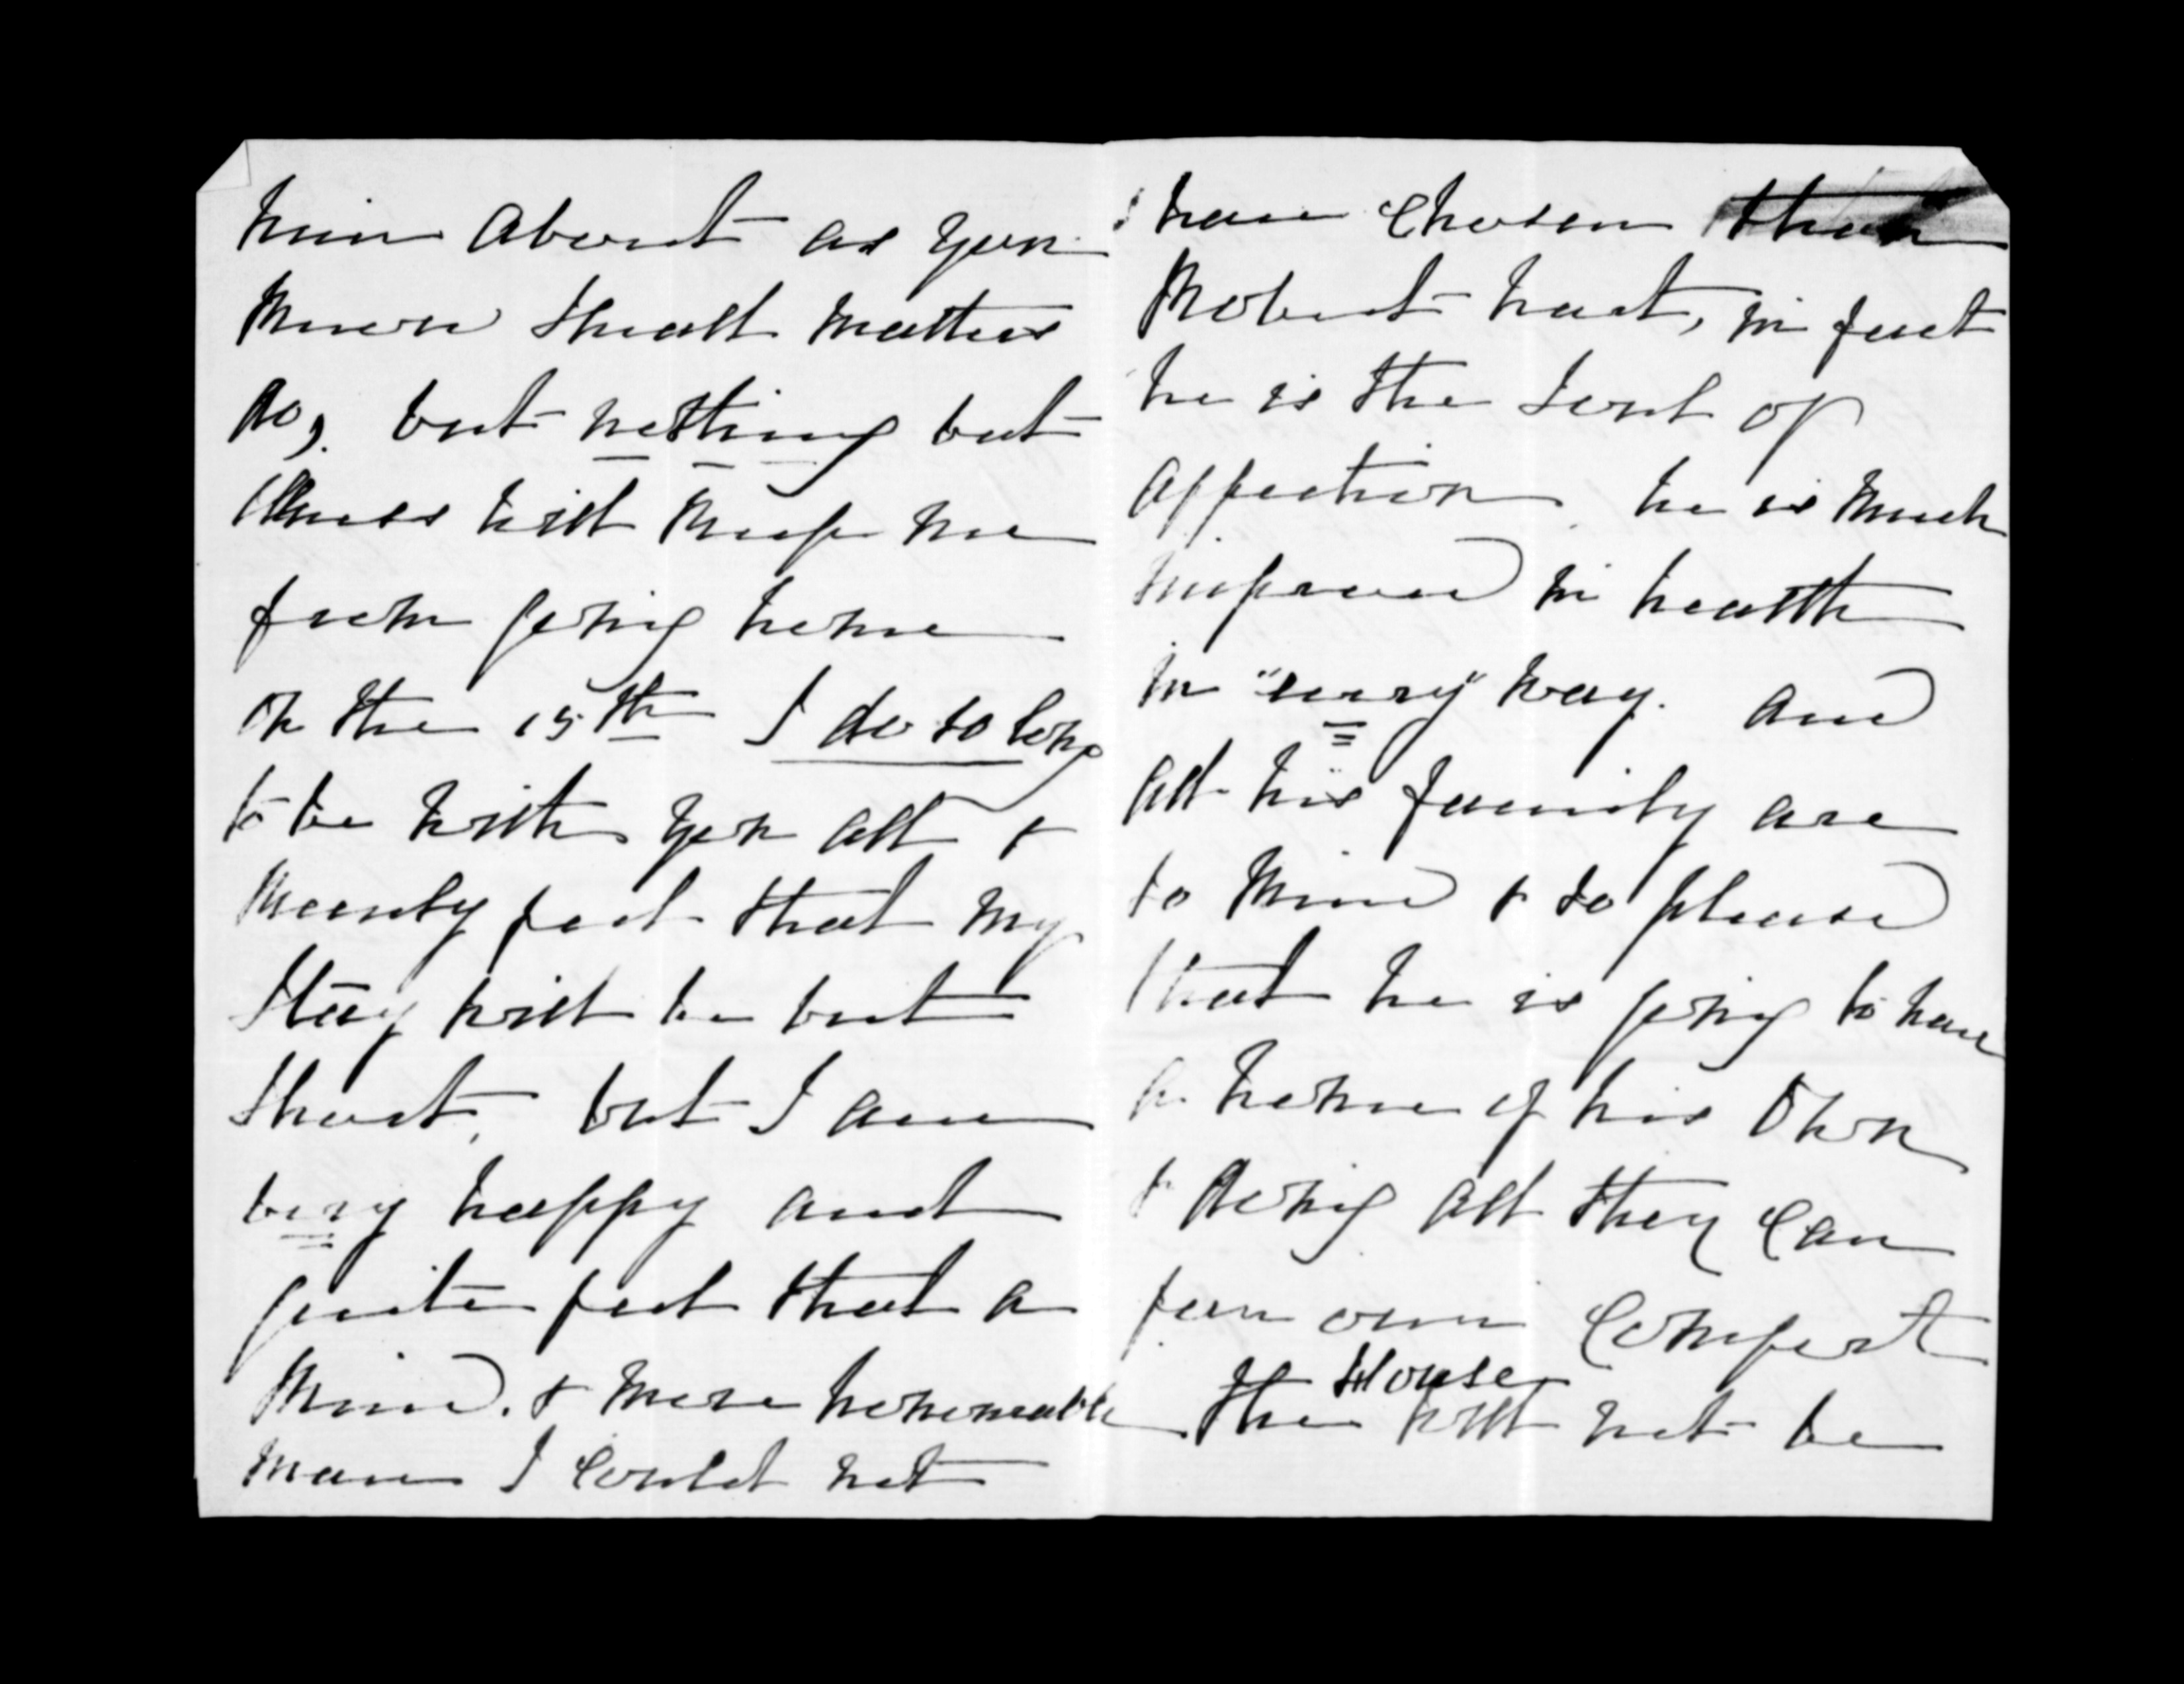 him about as you
know small matters
do, but nothing but
illness will keep me
from going home
on the 15th I do so long
to be with you all &
merely feel that my
stay will be but
short, but I am
very happy and
quite feel that a
kind. & more honourable
man I could not
have chosen than
Robert Hart, in fact
he is the soul of
affection. he is much
improved in health
in "every" way. and
all his family are
so kind & so pleased
that he is going to have
a home of his own
& doing all they can
for our comfort
House
the will not be